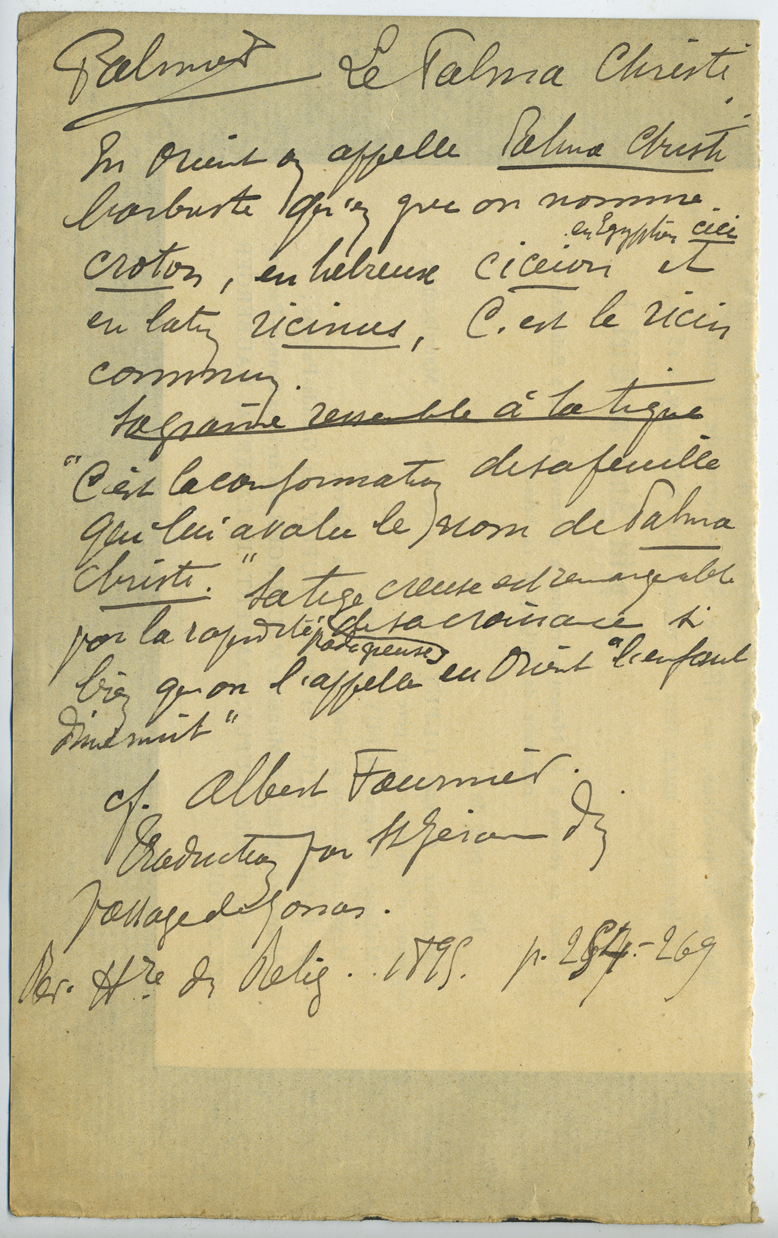 Palmier Le Palma Christi
En Orient on appelle Palma Christi
l'arbuste qu'en grec on nomme
croton, en hébreux ciceion en Egyptien cici et
en latin ricinus, C'est le ricin
commun.
Sa graine ressemble à la tique
"C'est la conformation de sa feuille
qui lui a valu le nom de Palma
Christi." Sa tige creuse est remarquable
par la rapidité prodigieuse de sa croissance si
bien qu'on l'appelle en Orient "l'enfant
d'une nuit"
cf. Albert Fournier.
Traduction par St Jérome d'un
passage de Jonas.
Rev. Hre des Relig. 1895. p. 267-269